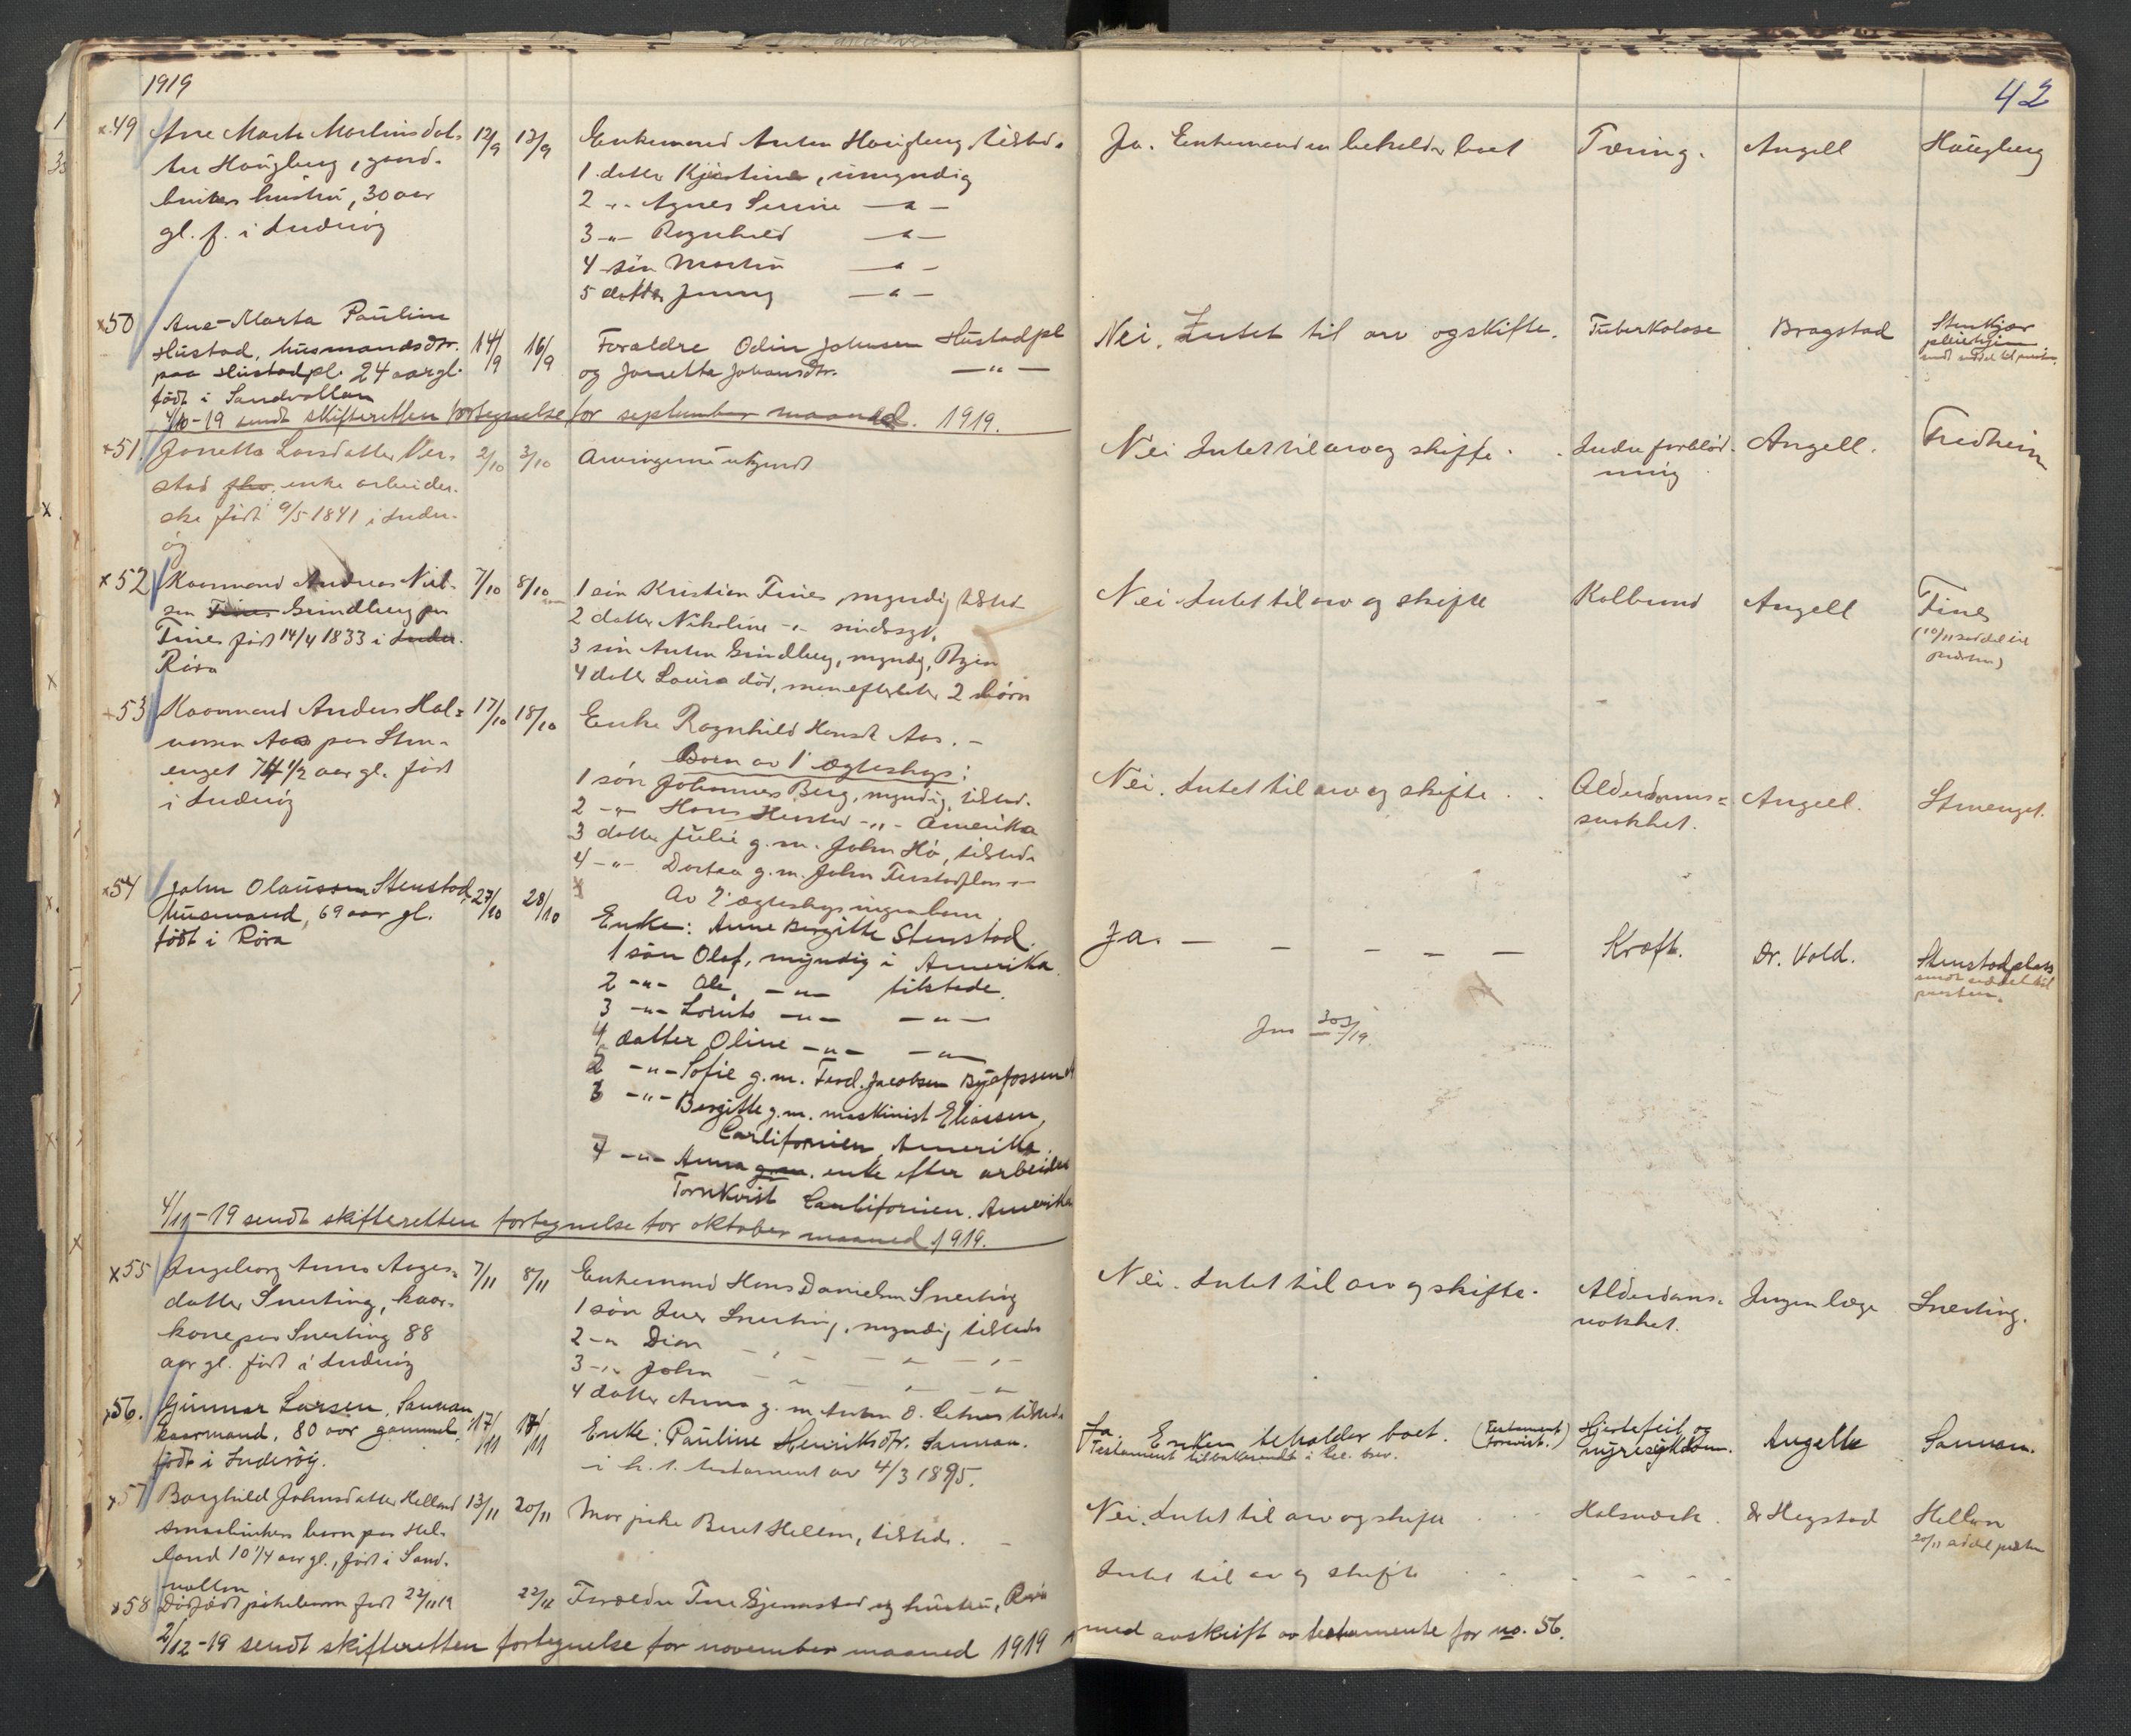 1919
42
x 49 Ane Marta Martinsdat-
ter Haugberg, gaard-
brukers hustru, 30 aar
gl. f. i Inderøy
12/9 13/9
Enkemand Anton Haugberg tilstede
1 datter Kjerstine, umyndig
2 -"- Agnes Serine —"—
3 -"- Ragnhild —"—
4 søn Martin —"—
5 datter Jenny —"—
Ja. Enkemanden beholder boet
Tæring.
Angell
Haugberg
x 50 Ane-Marta Pauline
Hustad, husmandsdtr.
paa Hustadpl. 24 aar gl.
født i Sandvollan
14/9 16/9
Forældre Odin Johnsen Hustadpl
og Jonetta Johansdtr. —"—
Nei. Intet til arv og skifte.
Tuberkolose
Bragstad
Stenkjær
pleiehjem
sendt seddel til presten.
4/10-19 sendt skifteretten fortegnelse for september maaned. 1919.
x 51. Jonetta Larsdatter Ver-
stad enke arbeider-
ske født 9/5 1841 i Inder-
øy
2/10 3/10
Arvingerne ukjendt
Nei Intet til arv og skifte.
Indre forblød-
ning
Angell.
Fredheim
x 52 Kaarmand Andreas Niel-
sen Fines Grindberg paa
Fines født 14/4 1833 i Inder.
Røra
7/10 8/10
1 søn Kristian Fines, myndig tilsted
2 datter Nikoline -"- sindssyk.
3 søn Anton Grindberg, myndig,
4 datter Lovisa død, men efterlater 2 børn
Nei Intet til arv og skifte
Kolbrand
Angell
Fines
(10/11 seddel til
presten)
x 53 Kaarmand Anders Hal-
vorsen Aas paa Sten-
enget 74 1/2 aar gl. født
i Inderøy
17/10 18/10
Enke Ragnhild Hansdt Aas. -
Børn av 1 ægteskap:
1 søn Johannes Berg, myndig, tilsted.
2 -"- Hans Hustad -"- Amerika
3 datter Julie g. m. John Hø, tilsted
4 -"- Dortea g. m. John -"-
Av 2 ægteskap ingen barn
Nei. Intet til arv og skifte.
Alderdoms-
svakhet.
Angell.
Stenenget.
x 54 John Olaussen Stenstad
husmand, 69 aar gl.
født i Røra
27/10 28/10
Enke: Anne Bergitte Stenstad.
1 søn Olaf, myndig i Amerika.
2 -"- Ole, -"- tilstede.
3 -"- Lorints -"- -"-
4 datter Oline -"- -"-
-"- Sofie g. m. Ferd. Jacobsen Byafossen
-"- Bergitte g. m. maskinist Eliassen,
Carlifornien, Amerika.
7 -"- Anna g. m. enke efter arbeider
Tornkvist Carlifornien. Amerika
Ja. — — — — —
Jnr 303/19
Kræft.
Dr. Vold.
Stenstadplads
sendt seddel til
presten.
4/11-19 sendt skifteretten fortegnelse for oktober maaned 1919.
x 55 Ingeborg Anna Aages-
datter Snerting, kaar-
kone paa Snerting 88
aar gl. født i Inderøy
7/11 8/11
Enkemand Hans Danielsen Snerting
1 søn Iver Snerting, myndig tilstede
2 -"- Dion -"- -"- -"-
3 -"- John -"- -"- -"-
4 datter Anna g. m. Anton O. tilstede
Nei. Intet til arv og skifte.
Alderdoms-
svakhet.
Ingen læge
Snerting.
x 56. Gunnar Larsen, Sannan
kaarmand, 80 aar gammel,
født i Inderøy.
17/11 18/11
Enke: Pauline Henriksdtr. Sannan.
i h. t. testament av 4/3 1895.
Ja. Enken beholder boet. (Testament forevist.)
Testament tilbakesendt i brev.
Hjertefeil og
nyresykdom.
Angell
Sannan.
x 57 Borghild Johnsdatter Helland
smaabrukers barn paa Hel-
land 10 1/4 aar gl., født i Sand-
vollan
13/11 20/11
Mor pike Beret Hellem, tilstede.
Nei. Intet til arv og skifte
Halsværk.
Dr Hegstad
Hellem
20/11 seddel presten
x 58 Dødfødt pikebarn født 22/11 19
22/11
Forældre Tore Gjermstad og hustru, Røra
Intet til arv og skifte
2/12-19 sendt skifteretten fortegnelse for november maaned 1919 med avskrift av testamente for no. 56.